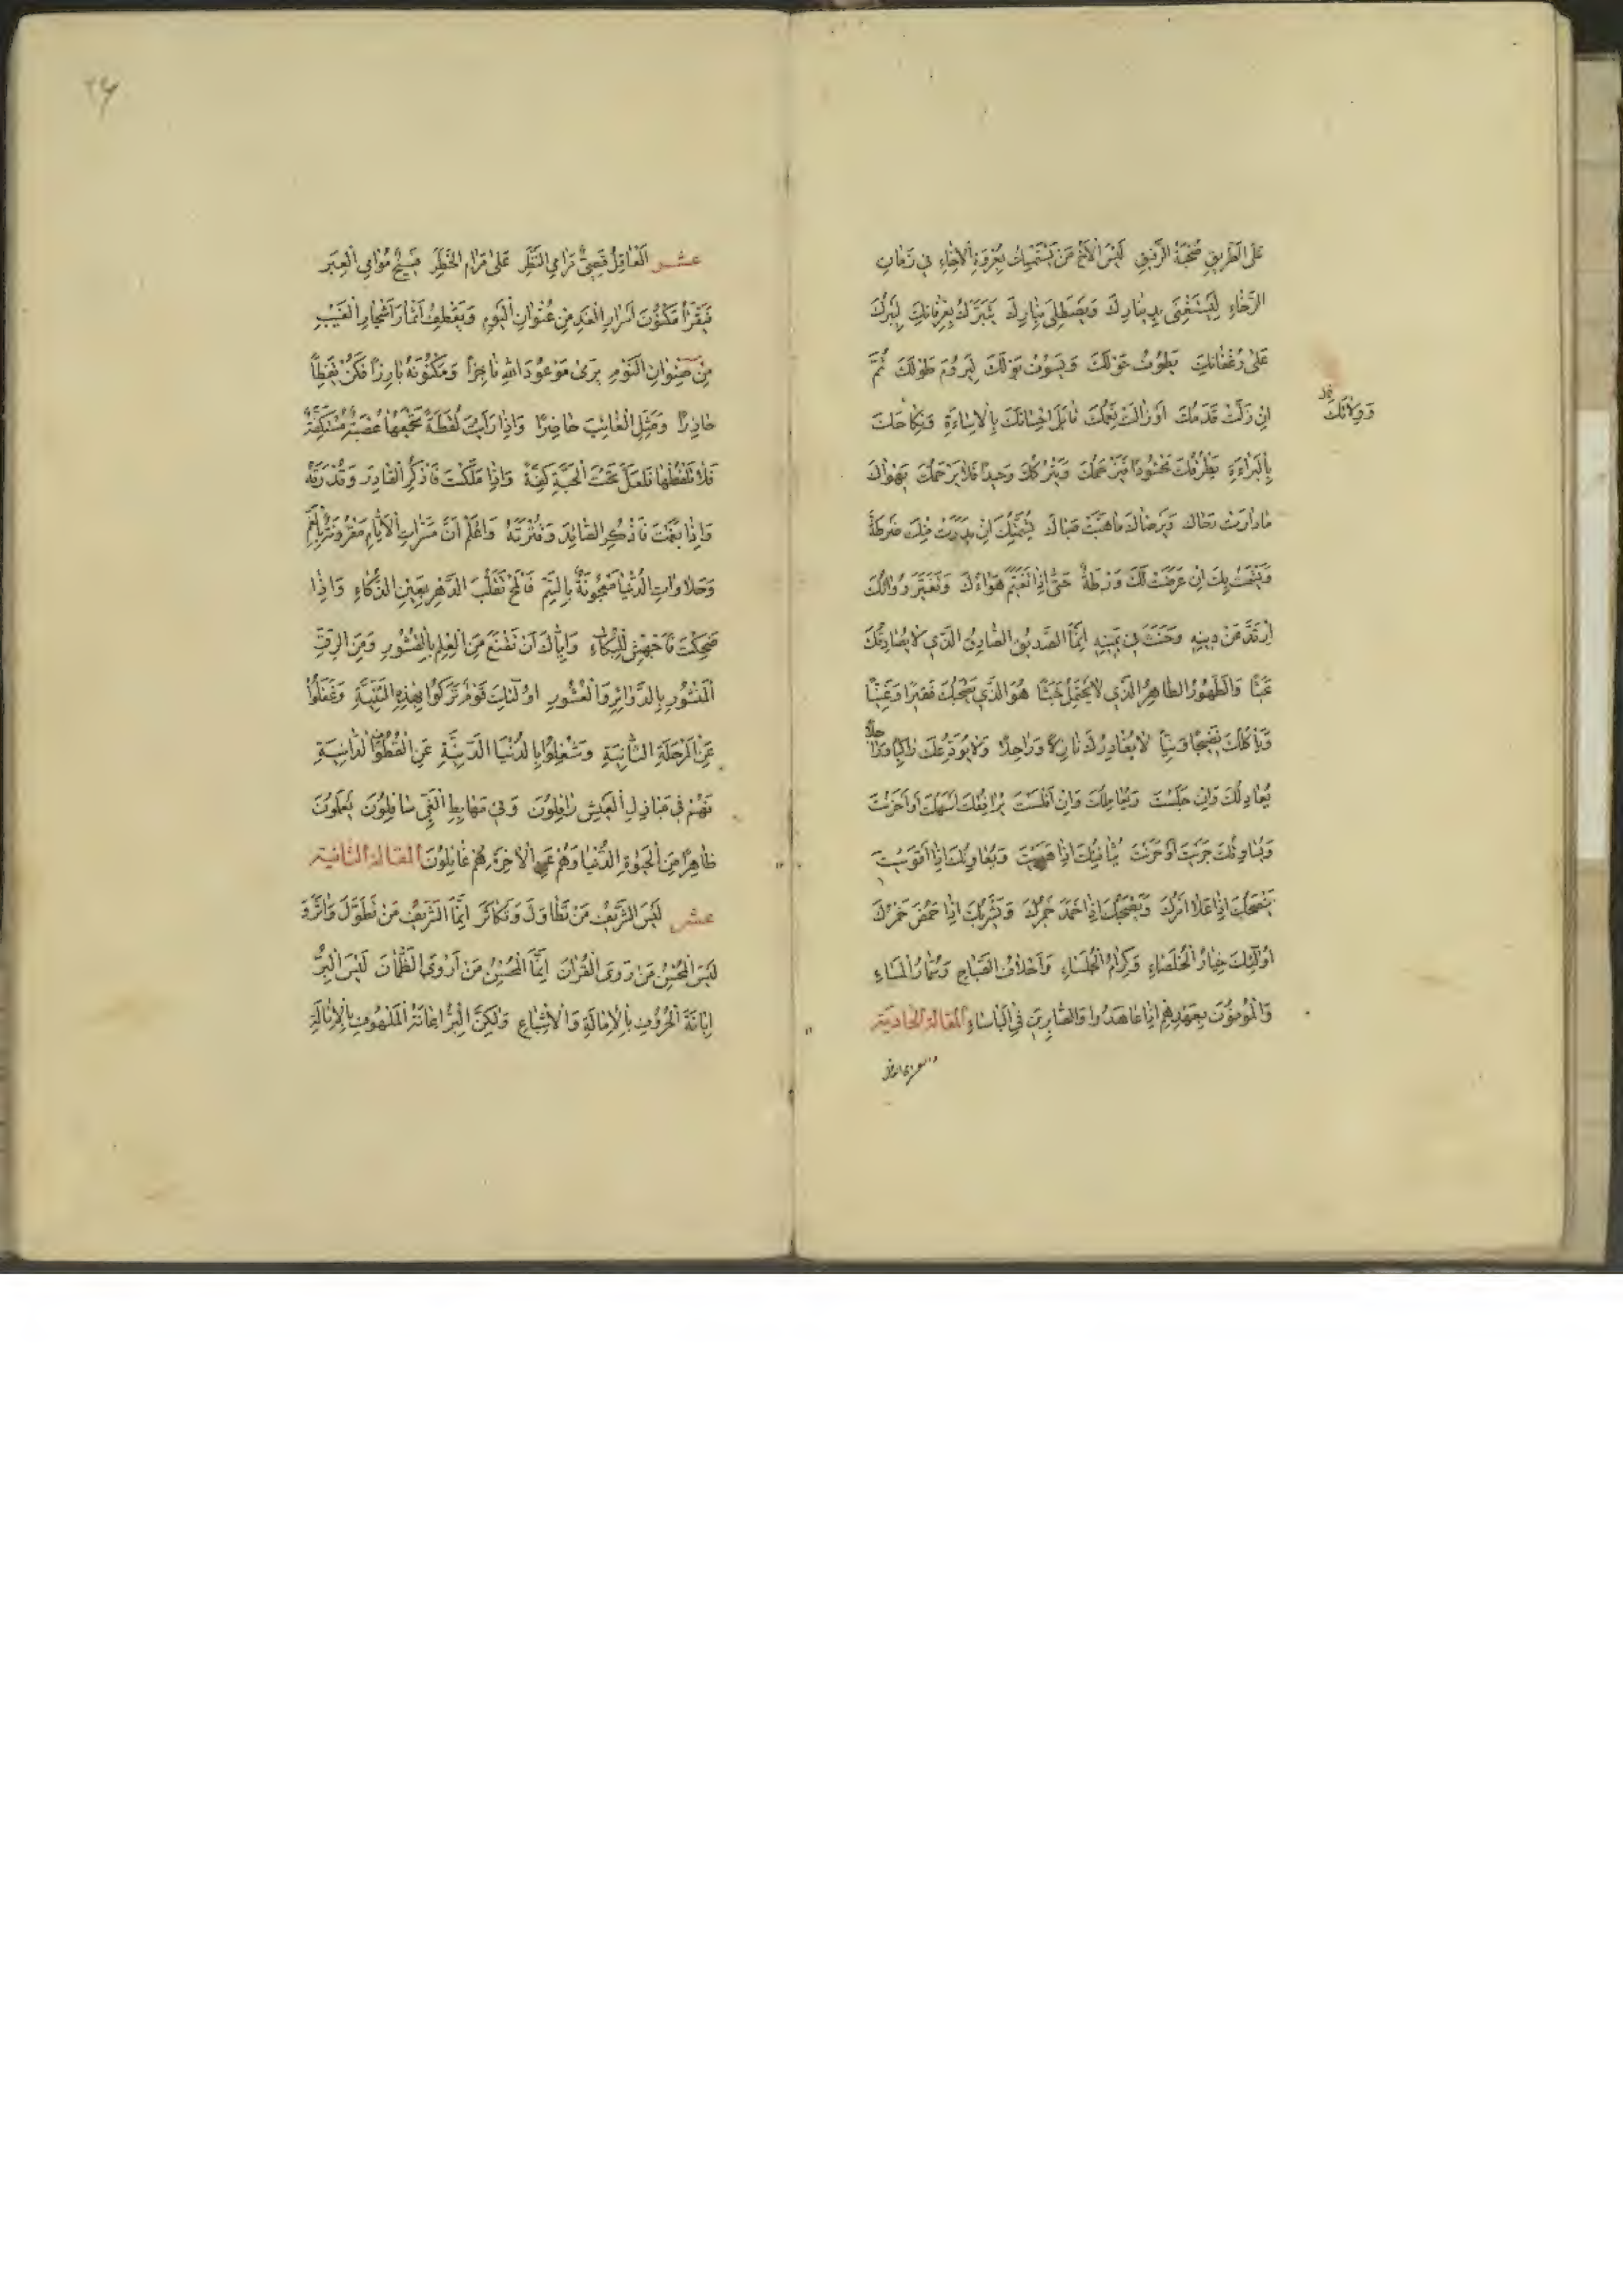 عَلَى الطَّرِيقِ صُحْبَةُ الرَّفِيقِ لَيْسَ الْأَخُ مَنْ يَسْتَمْسِكُ بِعُرْوَةِ الْإِخَاءِ فِي زَمَانِ
الرَّخَاءِ لِيَسْتَغْنِيَ بِدِينَارِكَ وَيَصْطَلِيَ بِنَارِكَ يَبَرُّكَ بِعِرْفَانِكَ لِبِرِّكَ
عَلَى رُغْفَانِكَ يَطُوفُ حَوْلَكَ وَيَسُوفُ بَوْلَكَ لِيَرُومَ طَوْلَكَ ثُمَّ
إِنْ زَلَّتْ قَدَمُكَ أَوْ زَالَتْ نِعَمُكَ قَابَلَ إِحْسَانَكَ بِالْإِسَاءَةِ
وَوِلَائَكَ
بِالْبَرَاءَةِ يَطْرُقُكَ مَحْشُودًا فَيَزْحَمُكَ وَيَتْرُكُكَ وَحِيدًا فَلَا يَرْحَمُكَ يَهْوَاكَ
مَا دَارَتْ رَحَاكَ وَيَرْضَاكَ مَا هَبَّتْ صَبَاكَ يُشَمِّتُكَ إِنْ بَدَرَتْ مِنْكَ ضَرْطَةٌ
إِنْ عَرَضَتْ لَكَ وَرْطَةٌ حَتَّى إِذَا تَغَيَّمَ هَوَاءُكَ وَتَغَيَّرَ رُوَاؤُكَ
اِرْتَدَّ عَنْ دِينِهِ وَحَنَثَ فِي يَمِينِهِ إِنَّمَا الصَّدِيقُ الصَّادِقُ الَّذِي لَا يُصَادِقُكَ
عَبَثًا وَالطَّهُورُ الطَّاهِرُ الَّذِي لَا يَحْتَمِلُ خَبَثًا هُوَ الَّذِي يَصْحَبُكَ فَقِيرًا وَغَنِيًّا
وَيَأْكُلُكَ نَضِيجًا وَنِيًّا لَا يُغَادِرُكَ نَازِلًا وَرَاحِلًا وَلَا يُوَدِّعُكَ رَاكِبًا وَرَاجِلًا
يُعَادِلُكَ وَإِنْ جَلَسْتَ وَيُعَامِلُكَ وَإِنْ أَفْلَسْتَ يُرَافِقُكَ أَسْهَلْتَ أَوْ أَحْزَنْتَ
يَنْصَحُكَ إِذَا عَلَا أَمْرُكَ وَيَصْحَبُكَ إِذَا خَمَدَ جَمْرُكَ وَيَشْرَبُكَ إِذَا حَمُضَ خَمْرُكَ
أُولَئِكَ خِيَارُ الْخُلَصَاءِ وَكِرَامُ الْجُلَسَاءِ وَأَحْلَافُ الصَّبَاحِ وَسُمَّارُ الْمَسَاءِ
وَالْمُوفُونَ بِعَهْدِهِمْ إِذَا عَاهَدُوا وَالصَّابِرِينَ فِي الْبَأْسَاءِ الْمَقَالَةُ الْحَادِيَةَ
عشر الْعَاقِلُ قَصِيُّ مَرَامِي النَّظَرِ فَسِيحُ مَوَامِي الْعِبَرِ
فَيَقْرَأُ مَكْنُونَ أَسْرَارِ الْغَدِ مِنْ عُنْوَانِ الْيَوْمِ وَيَقْطِفُ أَثْمَارَ أَشْجَارِ الْغَيْبِ
مِنْ صِنْوَانِ النَّوْمِ يَرَى مَوْعُودَ اللّٰهِ نَاجِزًا وَمَكْنُونَهُ بَارِزًا فَكُنْ يَقِظًا
حَاذِرًا وَمَثِّلِ الْغَائِبَ حَاضِرًا وَإِذَا رَأَيْتَ لُقَطَةً
فَلَا تَلْقُطْهَا فَلَعَلَّ تَحْتَ الْحَبَّةِ كِفَّةً وَإِذَا مَلَكْتَ فَاذْكُرِ الْقَادِرَ وَقُدْرَتَهُ
وَإِذَا بَغَمْتَ فَاذْكُرِ الصَّائِدَ وَقُتْرَتَهُ وَاعْلَمْ أَنَّ مَسَرَّاتِ الْأَيَّامِ مَقْرُونَةٌ
وَحَلَاوَاتِ الدُّنْيَا مَعْجُونَةٌ بِالسَّمِّ فَالْمَحْ تَقَلُّبَ الدَّهْرِ بِعَيْنِ الذَّكَاءِ وَإِذَا
ضَحِكْتَ فَاجْهَشْ لِلْبُكَاءِ وَإِيَّاكَ أَنْ تَقْنَعَ مِنَ الْعِلْمِ بِالْقُشُورِ وَمِنَ الرَّقِّ
الْمَنْشُورِ بِالدَّوَائِرِ وَالْعُشُورِ أُولَئِكَ قَوْمٌ تَرَكُوا وَغَفَلُوا
عَنِ الْمَرْحَلَةِ الثَّانِيَةِ وَشُغِلُوا بِالدُّنْيَا الدَّنِيَّةِ عَنِ الْقُطُوفِ الدَّانِيَةِ
فَهُمْ فِي مَبَاذِلِ الْعَيْشِ رَافِلُونَ وَفِي مَهَابِطِ الْغَيِّ سَافِلُونَ يَعْلَمُونَ
ظَاهِرًا مِنَ الْحَيَوةِ الدُّنْيَا وَهُمْ عَنِ الْآخِرَةِ هُمْ غَافِلُونَ الْمَقَالَةُ الثَّانِيَةَ
عشر لَيْسَ الشَّرِيفُ مَنْ تَطَاوَلَ وَتَكَاثَرَ إِنَّمَا الشَّرِيفُ مَنْ تَطَوَّلَ وَآثَرَ وَ
لَيْسَ الْمُحْسِنُ مَنْ رَوَى الْقُرْآنَ إِنَّمَا الْمُحْسِنُ مَنْ أَرْوَى الظَّمْآنَ لَيْسَ الْبِرُّ
إِبَانَةَ الْحُرُوفِ بِالْإِمَالَةِ وَالْإِشْبَاعِ وَلَكِنَّ الْبِرَّ إِغَاثَةُ الْمَلْهُوفِ بِالْإِنَالَةِ